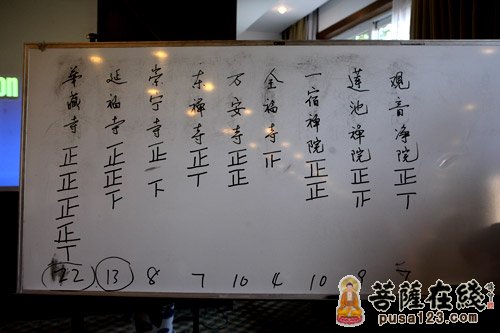 观音净院正丅 7
莲池禅院正正 9
一宿禅院正正 10
金福寺正 4
万安寺正正 10
东禅寺正丅 7
崇宁寺正下 8
延福寺正正下 13
华藏寺正正正正丅 22
on
菩萨在线
pusa123.com